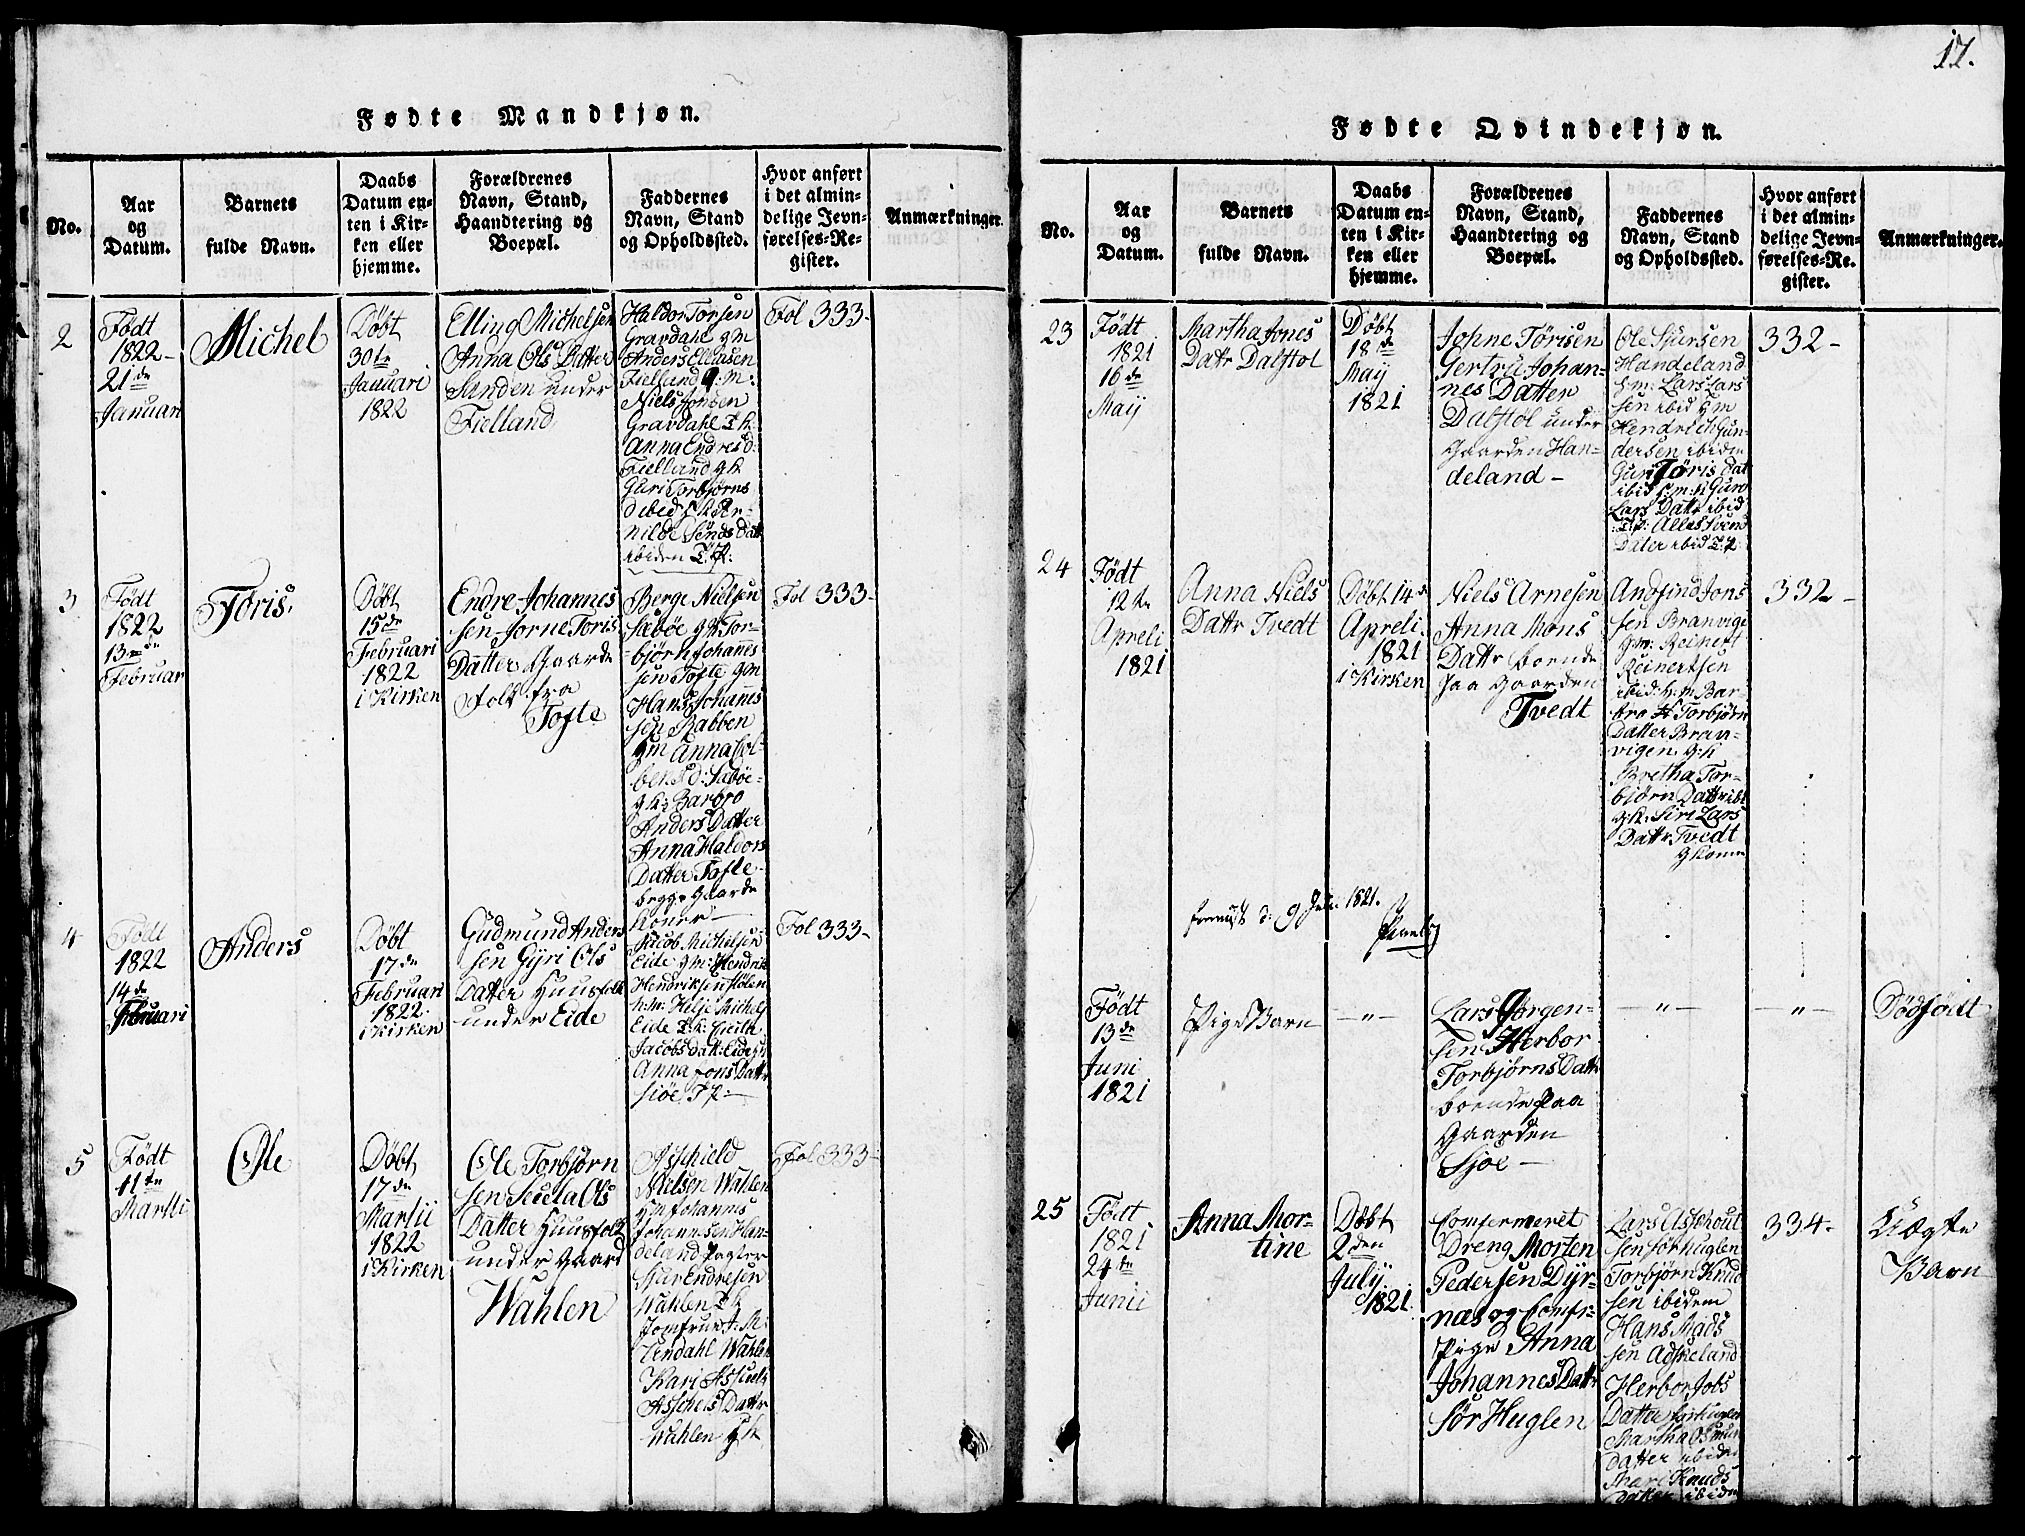 17.
Fødte Mandkjøn.
No.
Aar
og
Datum.
Barnets
fulde Navn.
Daabs
Datum en-
ten i Kir-
ken eller
hjemme.
Forældrenes
Navn, Stand,
Haandtering og
Boepæl.
Faddernes
Navn, Stand
og Opholdssted.
Hvor anført
i det almin-
delige Jevn-
førelses-Re-
gister.
Anmærkninger.
2
Født
1822-
21de
Januari
Michel
Døbt
30te
Januari
1822
Elling Michelsen
Anna Ols Datter
Sanden under
Fielland
Haldor Torsen
Gravdahl gm
Anders Eliasen
Fielland g: m:
Niels Jonsen
Gravdahl T k
Anna Endres d:
Fielland g k
Guri Torbjørns
d ibid
nilde Sends Datt
ibiden T: k:
Fol 333-
3
Født
1822
13de
Februar
Tøris,
Døbt
15de
Februari
1822
i Kirken
Endre Johannes
sen Jorne Toris
Datter Gaarde
folk fra
Tofte
Berge Nielsen
Sæbøe gk Tor-
-bjørn Johanes
sen Tofte gm
Hans Johannes
sen Rabben
gm Anna Col-
bens d: Sæbøe-
gk: Barbro
Anders Datter
Anna Haldors
Datter Tofte
begge Gaarde
koner-
Fol 333-
4
Født
1822
14de
Februari
Anders
Døbt
17de
Februari
1822.
i Kirken
Gudmund Anders
sen Gyri Ols
Datter Huusfolk
under Eide
Jacob Michelsen
Eide gm: Hendrik
Hendriksen
h: m: Helje Michels
Eide T. k: Cecilia
Jacobs datt: Eide
Anna Jons Datt
siøe T k-
Fol 333-
5
Født
11te
Martii
Ole
Døbt
17de
Martii
1822
i Kirken
Ole Torbjørn
sen Ols
Datter Huusfolk
under Gaard
Wahlen
Asschield
Nielsen Wahlen
gm Johannes
Johannesen Han-
deland
Sjur Endresen
Wahlen T k
Jomfrue A: M:
Lindahl Wahlen
Kari
Asscheis Datt
Wahlen g k
Fol 333-
Fødte Qvindekjøn.
No.
Aar
og
Datum.
Barnets
fulde Navn.
Daabs
Datum en-
ten i Kir-
ken eller
hjemme.
Forældrenes
Navn, Stand,
Haandtering og
Boepæl.
Faddernes
Navn, Stand
og Opholdssted.
Hvor anført
i det almin-
delige Jevn-
førelses-Re-
gister.
Anmærkninger.
23
Født
1821
16de
Maij
Martha Jones
Dattr Dalstol
Døbt
18de
Maij
1821
Johne Tørisen
Gertru Johan-
nes Datter
Dalstol under
Gaarden Han-
deland-
Ole Sjursen
Handeland
g: m: Lars Lars
sen ibid g m
Hendrich Gun-
dersen ibidem
Guri Tøris Dat
ibid
Lars Datt ibid
Svend
Dater ibid T. k
332-
24
Født
12te
Apreli
1821
Anna Niels
Dattr Tvedt
Døbt 14de
Apreli.
1821
i Kirken
Niels Arnesen
Anna Mons
Dattr boende
paa Gaarden
Tvedt
Andfind Jons
sen Branvige
g. m: Reinert
Reinertsen
ibid: h: m Bar-
bro Torbjørn
Datter Bran-
vigen. g: k
Bretha Tor-
bjørn Dattr ibi
g k: Siri Lars
Dattr Tvedt
g kone
332-
1821.
Født
13de
Juni
1821
Pige Barn
-"-
Lars Jorgen-
sen Herbor
Torbjørns Datt
boende paa
Gaarden
Sjoe-
-"-
-"-
Dødfødt
25
Født
1821
24de
Junii
Anna Mor-
tine
Døbt
2den
Julij
1821
Confermeret
Dreng Morten
Pedersen Dyr-
næs og Confr-
Pige Anna
Johannes Dattr
Sør Huglen
Lars Asschoult
sen sør huglen
Torbjørn Knud
sen ibidem
Hans Mads
sen Adskeland
Herbor Jobs
Datter sørhuglen
Martha Osmun
Datter ibidem
Mari Knuds
Datter ibidem
334-
Uægte
Barn